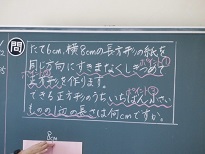 問
たて6cm、横8cmの長方形の紙を
同じ方向にすきまなくしきつめて
正方形を作ります。
できる正方形のうち、いちばん小さい
ものの1辺の長さは何cmですか。
8cm